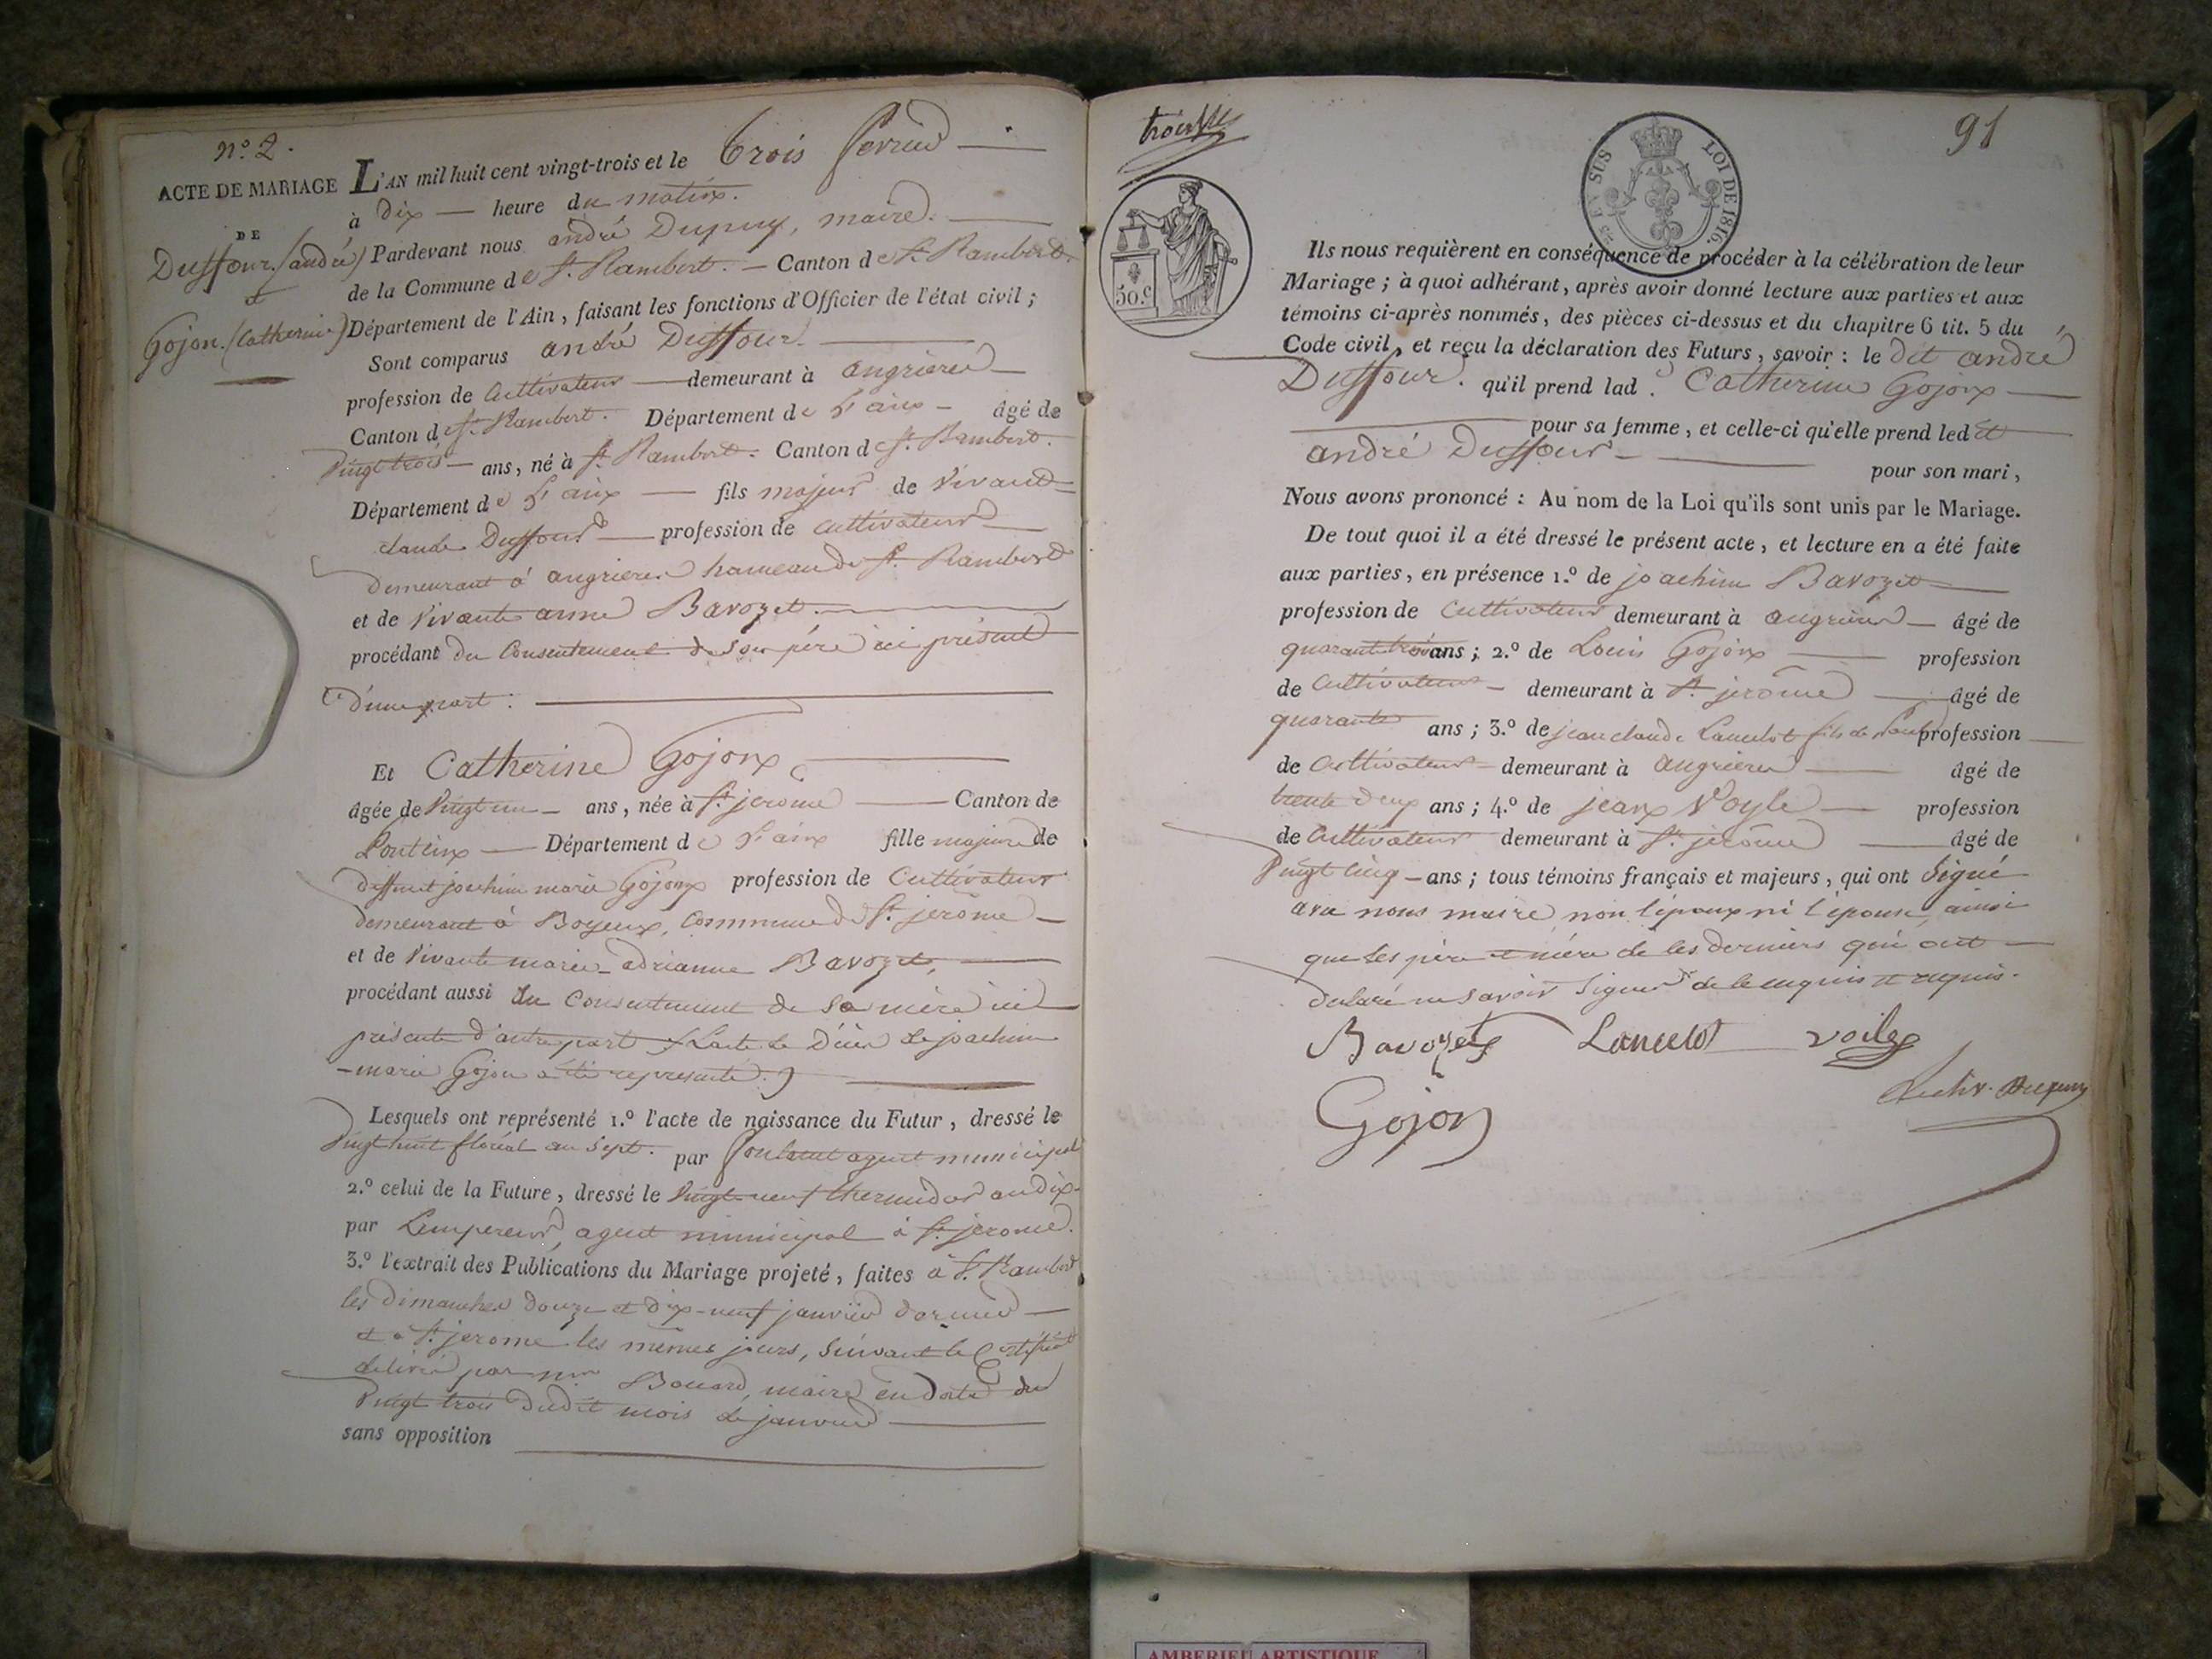 n.° 2.
ACTE DE MARIAGE
DE
Duffour (andré)
et
Gojon (Catherine)
L'AN mil huit cent vingt-trois et le trois fevrier
à dix heure du matin.
Pardevant nous andré Dupuy, maire
de la Commune de St. Rambert. Canton de St. Rambert
Département de l'Ain, faisant les fonctions d'Officier de l'état civil;
Sont comparus andré Duffour.
profession de Cultivateur demeurant à angrieres
Canton de St. Rambert. Département de L'ain âgé de
Vingt trois ans, né à St. Rambert. Canton de St. Rambert.
Département de L'ain fils majeur de Vivant
claude Duffour profession de cultivateur
demeurant à angrieres hameau de St. Rambert
et de Vivante anne Bavozet.
procédant du Consentement de son père ici présent
d'une part :
Et Catherine Gojon
âgée de Vingt un ans, née à St. jerome Canton de
Pontein Département de L'ain fille majeure de
deffunt joachim marie Gojon profession de Cultivateur
demeurant à Boyeux, Commune de St. jerôme
et de Vivante marie adrianne Bavozet,
procédant aussi du Consentement de sa mère ici
présente d'autre part (L'acte de Décès de joachim
-marie Gojon a été représenté.)
Lesquels ont représenté 1.° l'acte de naissance du Futur, dressé le
Vingt huit floréal an sept. par agent municipal
2.° celui de la Future, dressé le Vingt-neuf thermidor an dix
par Lempereur, agent municipal à St. jerome.
3.° l'extrait des Publications du Mariage projeté, faites à St. Rambert
les dimanches douze et dix-neuf janvier dernier
et à St. jerome les mêmes jours, suivant le Certificat
delivré par mr Bouard, maire en date du
Vingt trois dudit mois de janvier
sans opposition
91
EN SUS
LOI DE 1816.
50.C
Ils nous requièrent en conséquence de procéder à la célébration de leur
Mariage; à quoi adhérant, après avoir donné lecture aux parties et aux
témoins ci-après nommés, des pièces ci-dessus et du chapitre 6 tit. 5 du
Code civil, et reçu la déclaration des Futurs, savoir : le dit andré
Duffour. qu'il prend lad. Catherine Gojon
pour sa femme, et celle-ci qu'elle prend led it
andré Duffour
pour son mari,
Nous avons prononcé : Au nom de la Loi qu'ils sont unis par le Mariage.
De tout quoi il a été dressé le présent acte, et lecture en a été faite
aux parties, en présence 1.° de joachim Bavozet
profession de Cultivateur demeurant à angrieres âgé de
quarante trois ans; 2.° de Louis Gojon profession
de Cultivateur demeurant à St. jerôme âgé de
quarante ans; 3.° de jean claude Lancelot fils de profession
de Cultivateur demeurant à angrieres âgé de
trente deux ans; 4.° de jean Voyle profession
de Cultivateur demeurant à St. jerôme âgé de
Vingt cinq ans; tous témoins français et majeurs, qui ont Signé
avec nous maire, non l'époux ni l'épouse, ainsi
que les père et mère de ces derniers qui ont
declaré ne savoir Signer de ce enquis et requis.
Bavozet Lancelot voile
Gojon Dupuy
AMBERIEU ARTISTIQUE